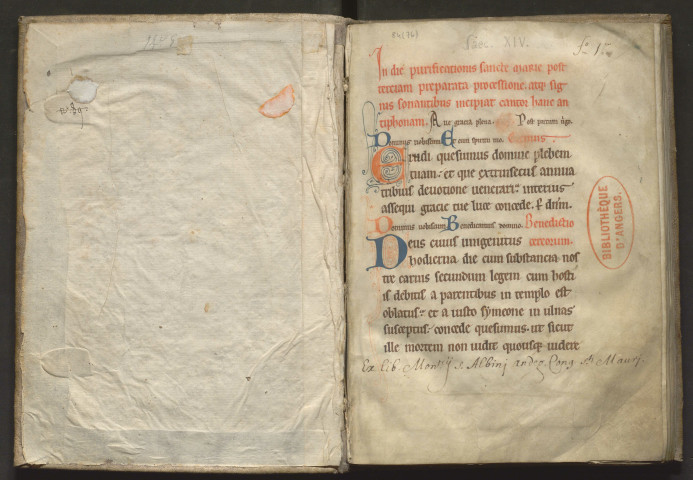 Saec. XIV.
In die purificationis sancte marie post
terciam preparata processione. atq; sig
nis sonantibus incipiat cantor hanc an
tiphonam. Ave gracia plena. Post partum v̄go.
Dominus vobiscum Et cum spiritu tuo. Oremus.
Erudi quesumus domine plebem
tuam. et que extrinsecus annua
tribuis devotione venerari. interius
assequi gracie tue luce concede. P̱ dn̄m.
Dominus vobiscum Benedicamus domino. Benedictio
Deus cuius unigenitus cereorum.
hodierna die cum substancia nos
tre carnis secundum legem cum hosti
is debitis a parentibus in templo est
oblatus. et a iusto symeone in ulnas
susceptus. concede quesumus. ut sicut
ille mortem non vidit quousq; videre
Ex lib. Monrij s. Albinj andeg. Cong. sti Maurj.
BIBLIOTHÈQUE
D'ANGERS.